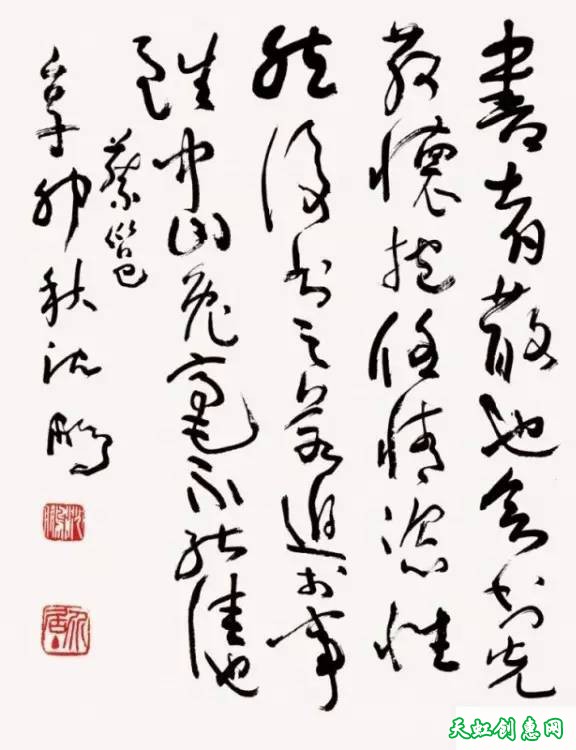 書者散也欲书先
散懷抱任情恣性
然後书之若迫於事
雖中山兔毫不能佳也
蔡邕
辛卯秋沈鹏
天虹创意网